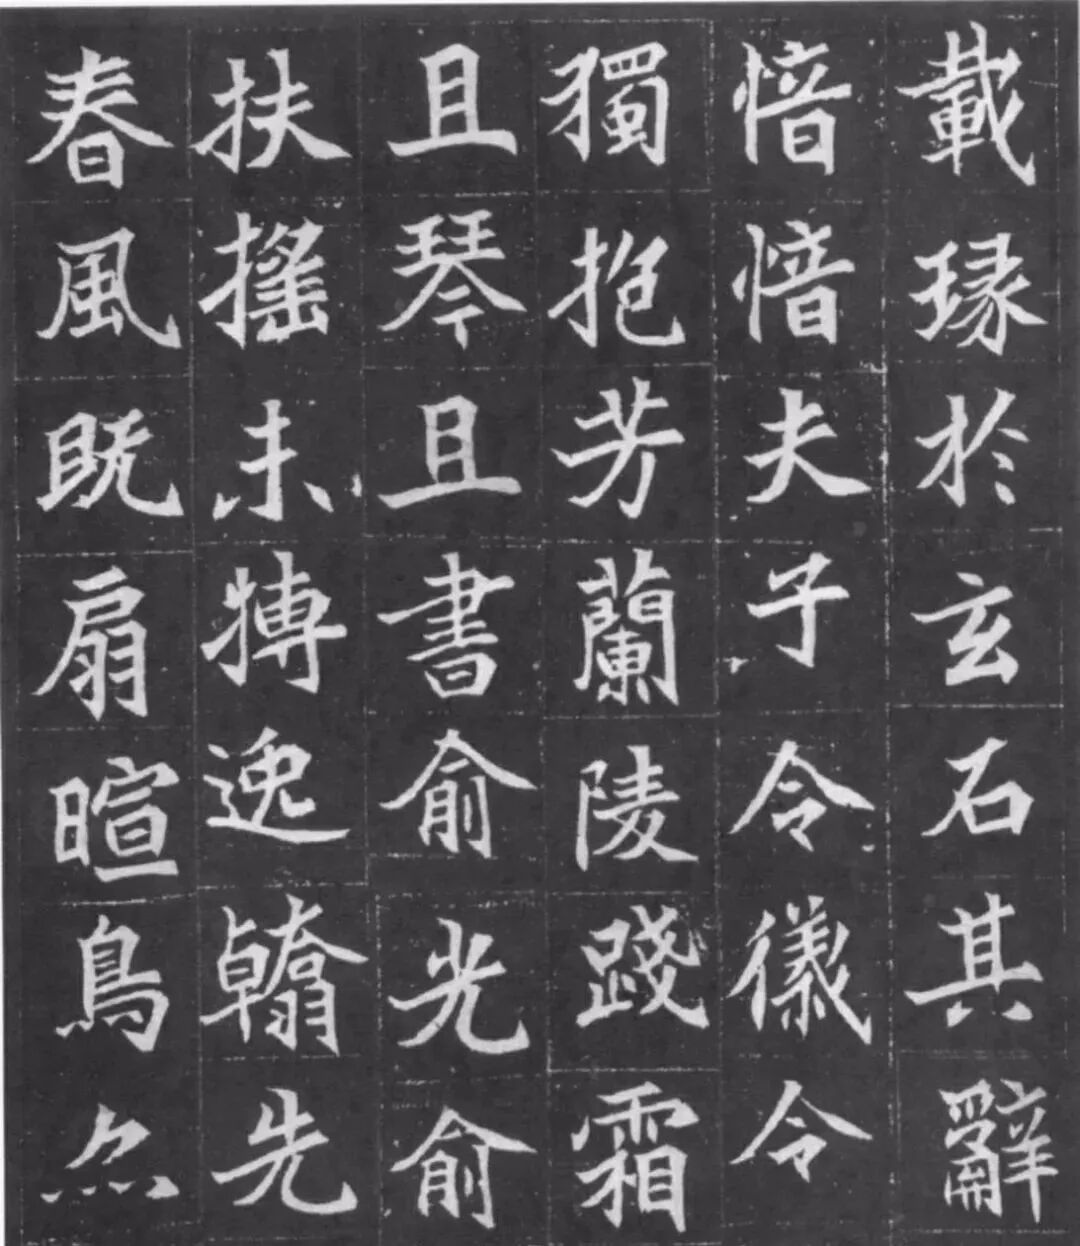 載瑑於玄石其辭
愔愔夫子令儀令
獨抱芳蘭陵踐霜
且琴且書俞光俞
扶搖未搏逸翰先
春風既扇暄鳥